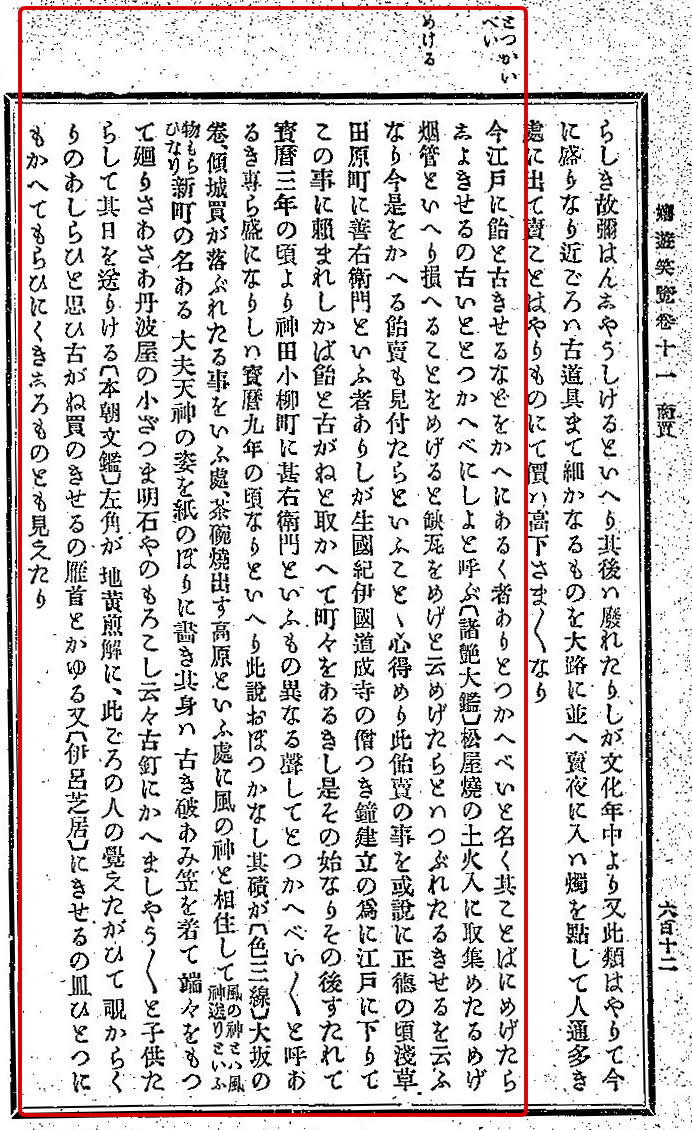 嬉遊笑覽卷十一 商賈
六百十二
とつかい
べい
めける
らしき故彌はんゑやうしけるといへり其後ハ廢れたりしが文化年中より又此類はやりて今
に盛りなり近ごろハ古道具まて細かなるものを大路に並へ賣夜に入ハ燭を點して人通多き
處に出て賣ことはやりものにて價ハ高下さま〱なり
今江戸に飴と古きせるなどをかへにあるく者ありとつかへべいと名く其ことばにめげたら
ゑよきせるの古いととつかへべにしよと呼ぶ〔諸艶大鑑〕松屋燒の土火入に取集めたるめげ
烟管といへり損へることをめげると缺瓦をめげと云めげたらとハつぶれたるきせるを云ふ
なり今是をかへる飴賣も見付たらといふことヽ心得めり此飴賣の事を或說に正德の頃淺草
田原町に善右衞門といふ者ありしが生國紀伊國道成寺の僧つき鐘建立の爲に江戸に下りて
この事に賴まれしかば飴と古がねと取かへて町々をあるきし是その始なりその後すたれて
寳暦三年の頃より神田小柳町に甚右衞門といふもの異なる聲してとつかへべい〱と呼あ
るき專ら盛になりしハ寳暦九年の頃なりといへり此說おぼつかなし其磧が〔色三線〕大坂の
卷、傾城買が落ぶれたる事をいふ處、茶碗燒出す高原といふ處に風の神と相住して風の神とハ風神送りといふ
物もらひなり新町の名ある 大夫天神の姿を紙のぼりに書き其身ハ 古き破あみ笠を着て 端々をもつ
て廻りさあさあ丹波屋の小ざつま明石やのもろこし云々古釘にかへましやう〱と子供た
らして其日を送りける〔本朝文鑑〕左角が 地黄煎解に、此ごろの人の覺えたがひて 覗からく
りのあしらひと思ひ古がね買のきせるの雁首とかゆる又〔伊呂芝居〕にきせるの皿ひとつに
もかへてもらひにくきゑろものとも見えたり